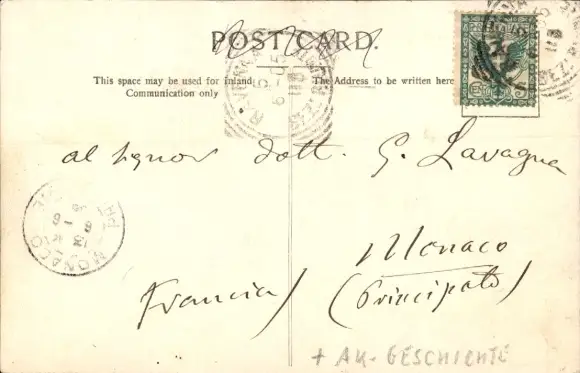 POST CARD.
This space may be used for Inland
Communication only
The Address to be written here
al Signor Dott. G. Lavagna
Monaco
(Principato)
(Francia)
RAVENNA
MONACO
+ AK-GESCHICHTE